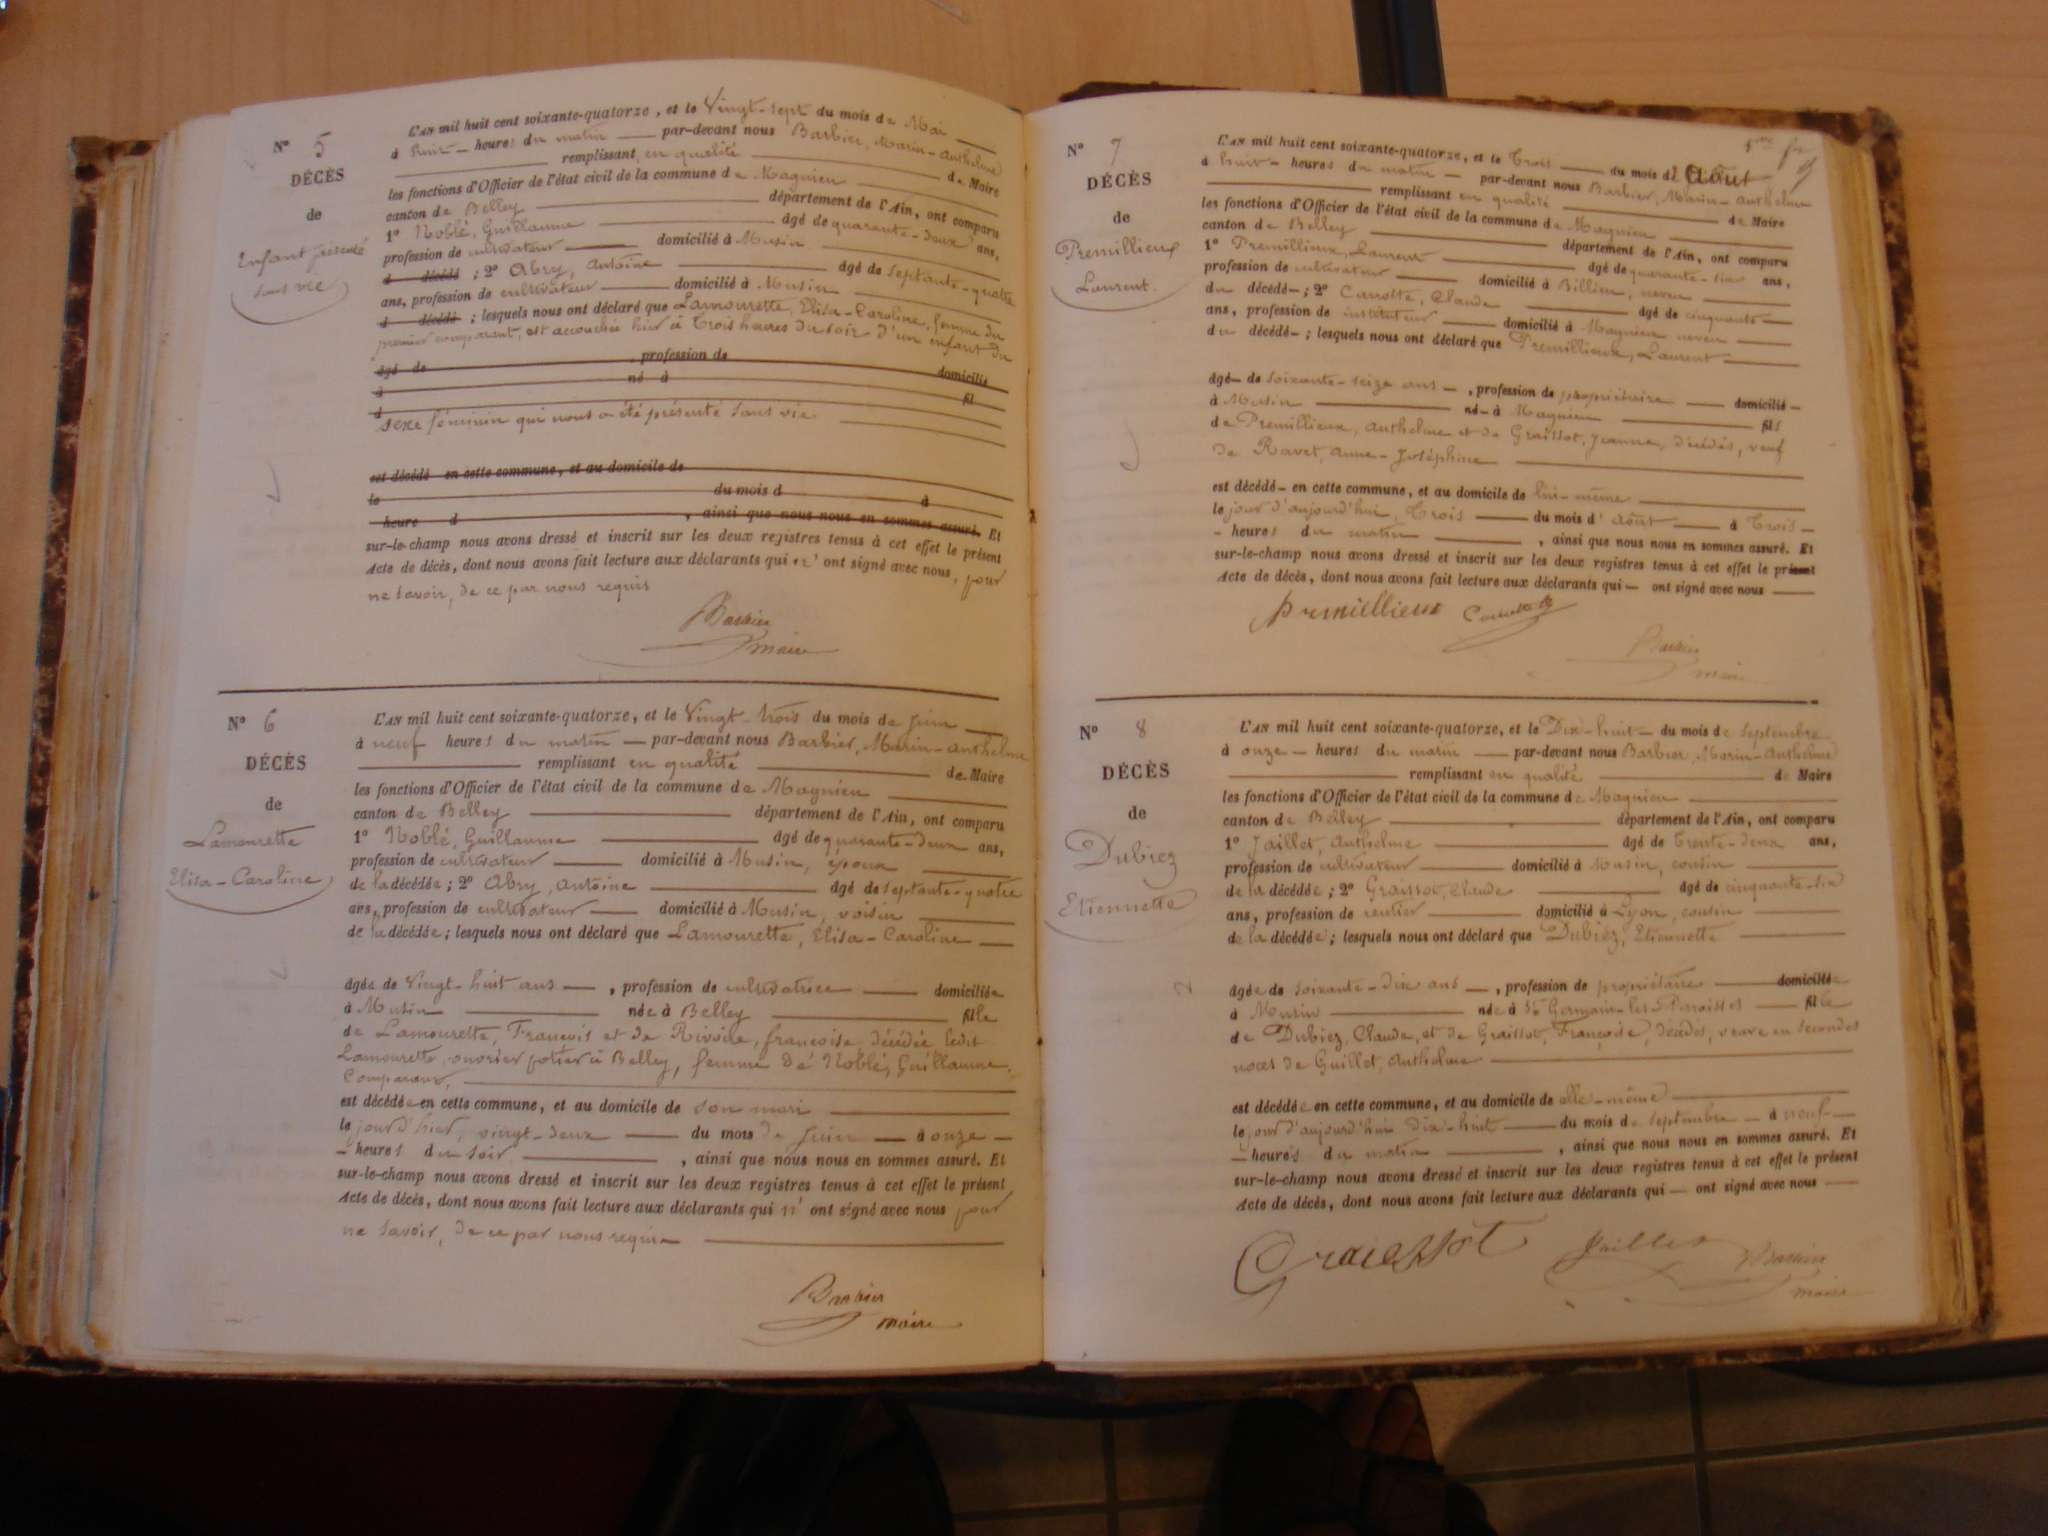 N° 5
DÉCÈS
de
Enfant présenté
sans vie
L'AN mil huit cent soixante-quatorze, et le Vingt-sept du mois de Mai
à huit heures du matin par-devant nous Barbier, Marin-Anthelme
remplissant en qualité de Maire
les fonctions d'Officier de l'état civil de la commune de Magnieu
canton de Belley département de l'Ain, ont comparu
1° Noblé, Guillaume âgé de quarante-deux ans,
profession de cultivateur domicilié à Musin
d décédé ; 2° Abry, Antoine âgé de septante-quatre
ans, profession de cultivateur domicilié à Musin
d décédé ; lesquels nous ont déclaré que Lamourette, Elisa-Caroline, femme du
premier comparant, est accouchée hier à trois heures du soir d'un enfant du
âgé de , profession de domicilié
à né à
d fil
sexe féminin qui nous a été présenté sans vie
est décédé en cette commune, et au domicile de
le du mois d à
heure d , ainsi que nous nous en sommes assuré. Et
sur-le-champ nous avons dressé et inscrit sur les deux registres tenus à cet effet le présent
Acte de décès, dont nous avons fait lecture aux déclarants qui n' ont signé avec nous, pour
ne savoir, de ce par nous requis
Barbier
maire
N° 6
DÉCÈS
de
Lamourette
Elisa-Caroline
L'AN mil huit cent soixante-quatorze, et le Vingt-trois du mois de juin
à neuf heures du matin par-devant nous Barbier, Marin-Anthelme
remplissant en qualité de Maire
les fonctions d'Officier de l'état civil de la commune de Magnieu
canton de Belley département de l'Ain, ont comparu
1° Noblé, Guillaume âgé de quarante-deux ans,
profession de cultivateur domicilié à Musin, époux
de la décédée ; 2° Abry, Antoine âgé de septante-quatre
ans, profession de cultivateur domicilié à Musin, voisin
de la décédée ; lesquels nous ont déclaré que Lamourette, Elisa-Caroline
âgée de Vingt-huit ans , profession de cultivatrice domiciliée
à Musin née à Belley fille
de Lamourette, François et de Rivoire, françoise, décédée, ledit
Lamourette, ouvrier potier à Belley, femme de Noblé, Guillaume,
Comparant,
est décédée en cette commune, et au domicile de son mari
le jour d'hier, vingt-deux du mois de juin à onze
heures du soir , ainsi que nous nous en sommes assuré. Et
sur-le-champ nous avons dressé et inscrit sur les deux registres tenus à cet effet le présent
Acte de décès, dont nous avons fait lecture aux déclarants qui n' ont signé avec nous pour
ne savoir, de ce par nous requis
Barbier
maire
N° 7
DÉCÈS
de
Premillieux
Laurent.
L'AN mil huit cent soixante-quatorze, et le Trois du mois d'Août
à huit heures du matin par-devant nous Barbier, Marin-Anthelme
remplissant en qualité de Maire
les fonctions d'Officier de l'état civil de la commune de Magnieu
canton de Belley département de l'Ain, ont comparu
1° Premillieux, Laurent âgé de quarante-six ans,
profession de cultivateur domicilié à Billieu, neveu
du décédé ; 2° Carrotte, Claude âgé de cinquante
ans, profession de instituteur domicilié à Magnieu neveu
du décédé ; lesquels nous ont déclaré que Premillieux, Laurent
âgé de soixante-seize ans , profession de propriétaire domicilié
à Musin né à Magnieu fils
de Premillieux, Anthelme et de Graissot, Jeanne, décédés, veuf
de Ravet, Anne-Joséphine
est décédé en cette commune, et au domicile de lui-même
le jour d'aujourd'hui, Trois du mois d'août à Trois
heures du matin , ainsi que nous nous en sommes assuré. Et
sur-le-champ nous avons dressé et inscrit sur les deux registres tenus à cet effet le présent
Acte de décès, dont nous avons fait lecture aux déclarants qui ont signé avec nous
Premillieux
Barbier
maire
N° 8
DÉCÈS
de
Dubiez
Etiennette
L'AN mil huit cent soixante-quatorze, et le Dix-huit du mois de Septembre
à onze heures du matin par-devant nous Barbier, Marin-Anthelme
remplissant en qualité de Maire
les fonctions d'Officier de l'état civil de la commune de Magnieu
canton de Belley département de l'Ain, ont comparu
1° Jaillet, Anthelme âgé de trente-deux ans,
profession de cultivateur domicilié à Musin, cousin
de la décédée ; 2° Graissot, Claude âgé de cinquante-six
ans, profession de rentier domicilié à Lyon, cousin
de la décédée ; lesquels nous ont déclaré que Dubiez, Etiennette
âgée de soixante-dix ans , profession de propriétaire domiciliée
à Musin née à St Germain-les-Paroisses fille
de Dubiez, Claude, et de Graissot, Françoise, décédés, veuve en secondes
noces de Guillet, Anthelme
est décédée en cette commune, et au domicile de elle-même
le jour d'aujourd'hui dix-huit du mois de septembre à neuf
heures du matin , ainsi que nous nous en sommes assuré. Et
sur-le-champ nous avons dressé et inscrit sur les deux registres tenus à cet effet le présent
Acte de décès, dont nous avons fait lecture aux déclarants qui ont signé avec nous
Graissot Jaillet Barbier
maire